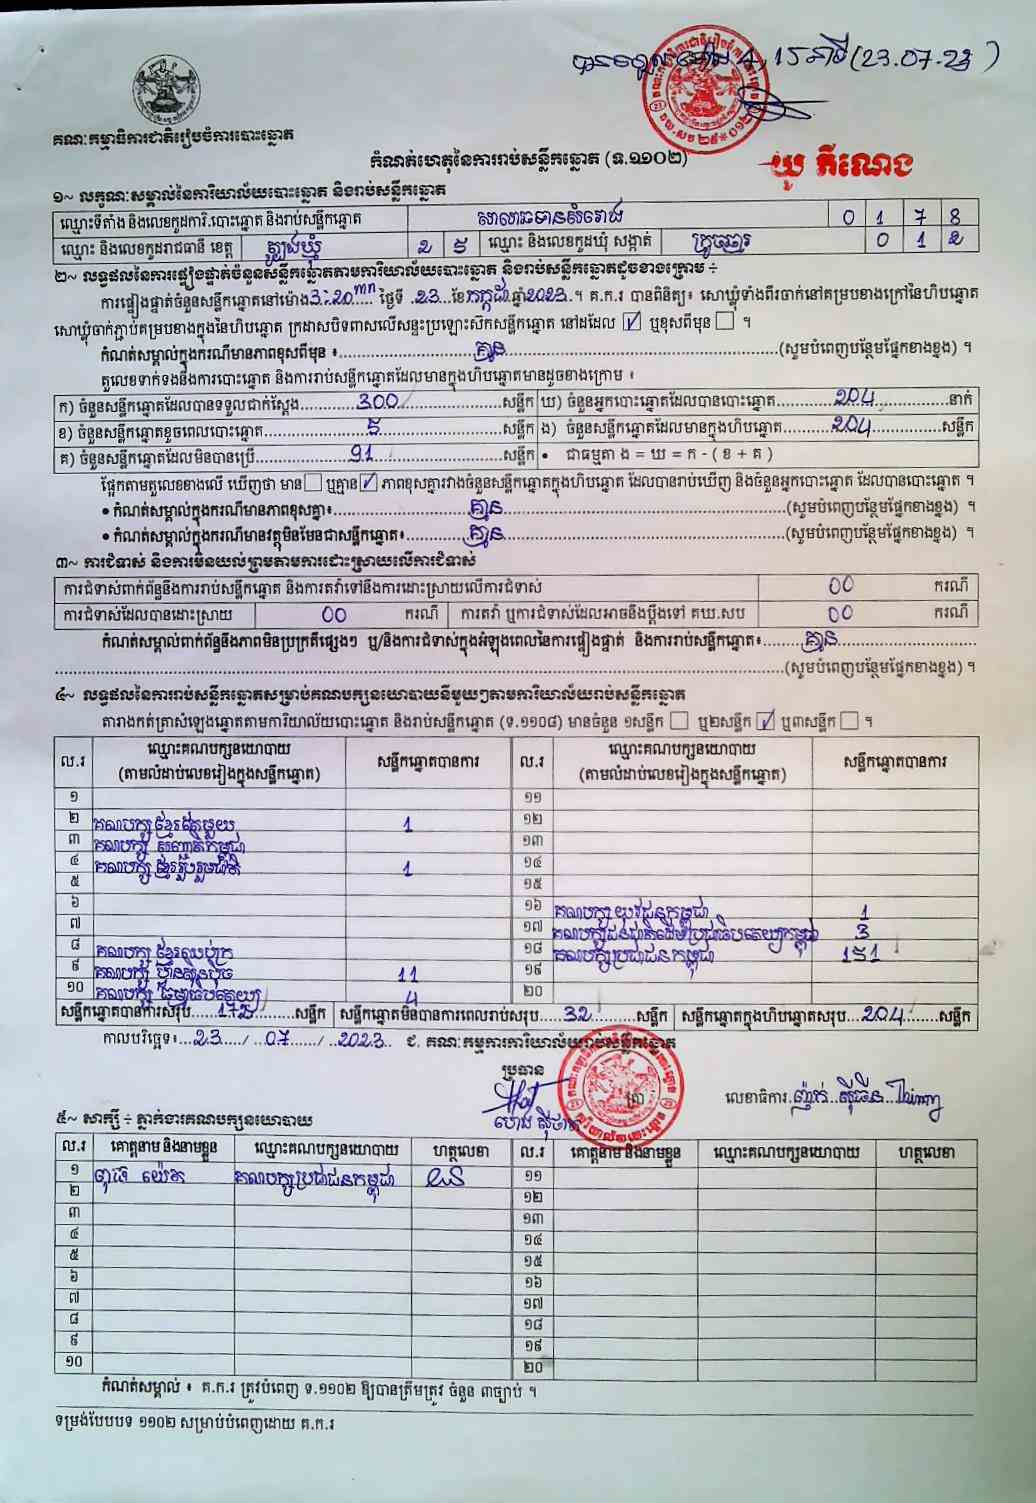 បានទទួលម៉ោង 4, 15 នាទី (23.07.23)
គណៈកម្មាធិការជាតិរៀបចំការបោះឆ្នោត
កំណត់ហេតុនៃការរាប់សន្លឹកឆ្នោត (ទ.១១០២)
១~ លក្ខណៈសម្គាល់នៃការិយាល័យបោះឆ្នោត និងរាប់សន្លឹកឆ្នោត
ឈ្មោះទីតាំង និងលេខកូដការិ.បោះឆ្នោត និងរាប់សន្លឹកឆ្នោត 0 1 7 8
ឈ្មោះ និងលេខកូដរាជធានី ខេត្ត ត្បូងឃ្មុំ 2 5 ឈ្មោះ និងលេខកូដឃុំ សង្កាត់ 0 1 2
២~ លទ្ធផលនៃការផ្ទៀងផ្ទាត់ចំនួនសន្លឹកឆ្នោតតាមការិយាល័យបោះឆ្នោត និងរាប់សន្លឹកឆ្នោតដូចខាងក្រោម ÷
ការផ្ទៀងផ្ទាត់ចំនួនសន្លឹកឆ្នោតនៅម៉ោង 3:20mn ថ្ងៃទី 23 ខែកក្កដា ឆ្នាំ2023 ។ គ.ក.រ បានពិនិត្យ៖ សោឃ្លុំទាំងពីរចាក់នៅគម្របខាងក្រៅនៃហិបឆ្នោត
សោឃ្លុំចាក់ភ្ជាប់គម្របខាងក្នុងនៃហិបឆ្នោត ក្រដាសបិទពាសលើសន្ទះប្រឡោះស៊កសន្លឹកឆ្នោត នៅដដែល ☑ ឬខុសពីមុន ☐ ។
កំណត់សម្គាល់ក្នុងករណីមានភាពខុសពីមុន ៖ គ្មាន (សូមបំពេញបន្ថែមផ្នែកខាងខ្នង) ។
តួលេខទាក់ទងនឹងការបោះឆ្នោត និងការរាប់សន្លឹកឆ្នោតដែលមានក្នុងហិបឆ្នោតមានដូចខាងក្រោម ៖
ក) ចំនួនសន្លឹកឆ្នោតដែលបានទទួលជាក់ស្តែង 300 សន្លឹក ឃ) ចំនួនអ្នកបោះឆ្នោតដែលបានបោះឆ្នោត 204 នាក់
ខ) ចំនួនសន្លឹកឆ្នោតខូចពេលបោះឆ្នោត 5 សន្លឹក ង) ចំនួនសន្លឹកឆ្នោតដែលមានក្នុងហិបឆ្នោត 204 សន្លឹក
គ) ចំនួនសន្លឹកឆ្នោតដែលមិនបានប្រើ 91 សន្លឹក • ជាធម្មតា ង = ឃ = ក - ( ខ + គ )
ផ្អែកតាមតួលេខខាងលើ ឃើញថា មាន ☐ ឬគ្មាន ☑ ភាពខុសគ្នារវាងចំនួនសន្លឹកឆ្នោតក្នុងហិបឆ្នោត ដែលបានរាប់ឃើញ និងចំនួនអ្នកបោះឆ្នោត ដែលបានបោះឆ្នោត ។
• កំណត់សម្គាល់ក្នុងករណីមានភាពខុសគ្នា៖ គ្មាន (សូមបំពេញបន្ថែមផ្នែកខាងខ្នង) ។
• កំណត់សម្គាល់ក្នុងករណីមានវត្ថុមិនមែនជាសន្លឹកឆ្នោត៖ គ្មាន (សូមបំពេញបន្ថែមផ្នែកខាងខ្នង) ។
៣~ ការជំទាស់ និងការមិនយល់ព្រមតាមការដោះស្រាយលើការជំទាស់
ការជំទាស់ពាក់ព័ន្ធនឹងការរាប់សន្លឹកឆ្នោត និងការតវ៉ាទៅនឹងការដោះស្រាយលើការជំទាស់ 00 ករណី
ការជំទាស់ដែលបានដោះស្រាយ 00 ករណី ការតវ៉ា ឬការជំទាស់ដែលអាចនឹងប្តឹងទៅ គឃ.សប 00 ករណី
កំណត់សម្គាល់ពាក់ព័ន្ធនឹងភាពមិនប្រក្រតីផ្សេងៗ ឬ/និងការជំទាស់ក្នុងអំឡុងពេលនៃការផ្ទៀងផ្ទាត់ និងការរាប់សន្លឹកឆ្នោត៖ គ្មាន
(សូមបំពេញបន្ថែមផ្នែកខាងខ្នង) ។
៤~ លទ្ធផលនៃការរាប់សន្លឹកឆ្នោតសម្រាប់គណបក្សនយោបាយនីមួយៗតាមការិយាល័យរាប់សន្លឹកឆ្នោត
តារាងកត់ត្រាសំឡេងឆ្នោតតាមការិយាល័យបោះឆ្នោត និងរាប់សន្លឹកឆ្នោត (ទ.១១០៨) មានចំនួន ១សន្លឹក ☐ ឬ២សន្លឹក ☑ ឬ៣សន្លឹក ☐ ។
ល.រ ឈ្មោះគណបក្សនយោបាយ (តាមលំដាប់លេខរៀងក្នុងសន្លឹកឆ្នោត) សន្លឹកឆ្នោតបានការ ល.រ ឈ្មោះគណបក្សនយោបាយ (តាមលំដាប់លេខរៀងក្នុងសន្លឹកឆ្នោត) សន្លឹកឆ្នោតបានការ
១ ១១
២ គណបក្ស ខ្មែរតែមួយ 1 ១២
៣ គណបក្ស សញ្ជាតិកម្ពុជា ១៣
៤ គណបក្ស ខ្មែររួបរួមជាតិ 1 ១៤
៥ ១៥
៦ ១៦ គណបក្ស យុវជនកម្ពុជា 1
៧ ១៧ គណបក្សជនជាតិដើមប្រជាធិបតេយ្យកម្ពុជា 3
៨ គណបក្ស ខ្មែរឈប់ក្រ ១៨ គណបក្សប្រជាជនកម្ពុជា 151
៩ គណបក្ស ហ្វ៊ុនស៊ិនប៉ិច 11 ១៩
១០ គណបក្ស ធម្មាធិបតេយ្យ 4 ២០
សន្លឹកឆ្នោតបានការសរុប 172 សន្លឹក សន្លឹកឆ្នោតមិនបានការពេលរាប់សរុប 32 សន្លឹក សន្លឹកឆ្នោតក្នុងហិបឆ្នោតសរុប 204 សន្លឹក
កាលបរិច្ឆេទ៖ 23 / 07 / 2023 ជ. គណៈកម្មការការិយាល័យរាប់សន្លឹកឆ្នោត
ប្រធាន
លេខាធិការ
៥~ សាក្សី ÷ ភ្នាក់ងារគណបក្សនយោបាយ
ល.រ គោត្តនាម និងនាមខ្លួន ឈ្មោះគណបក្សនយោបាយ ហត្ថលេខា ល.រ គោត្តនាម និងនាមខ្លួន ឈ្មោះគណបក្សនយោបាយ ហត្ថលេខា
១ គណបក្សប្រជាជនកម្ពុជា ១១
២ ១២
៣ ១៣
៤ ១៤
៥ ១៥
៦ ១៦
៧ ១៧
៨ ១៨
៩ ១៩
១០ ២០
កំណត់សម្គាល់ ៖ គ.ក.រ ត្រូវបំពេញ ទ.១១០២ ឱ្យបានត្រឹមត្រូវ ចំនួន ៣ច្បាប់ ។
ទម្រង់បែបបទ ១១០២ សម្រាប់បំពេញដោយ គ.ក.រ